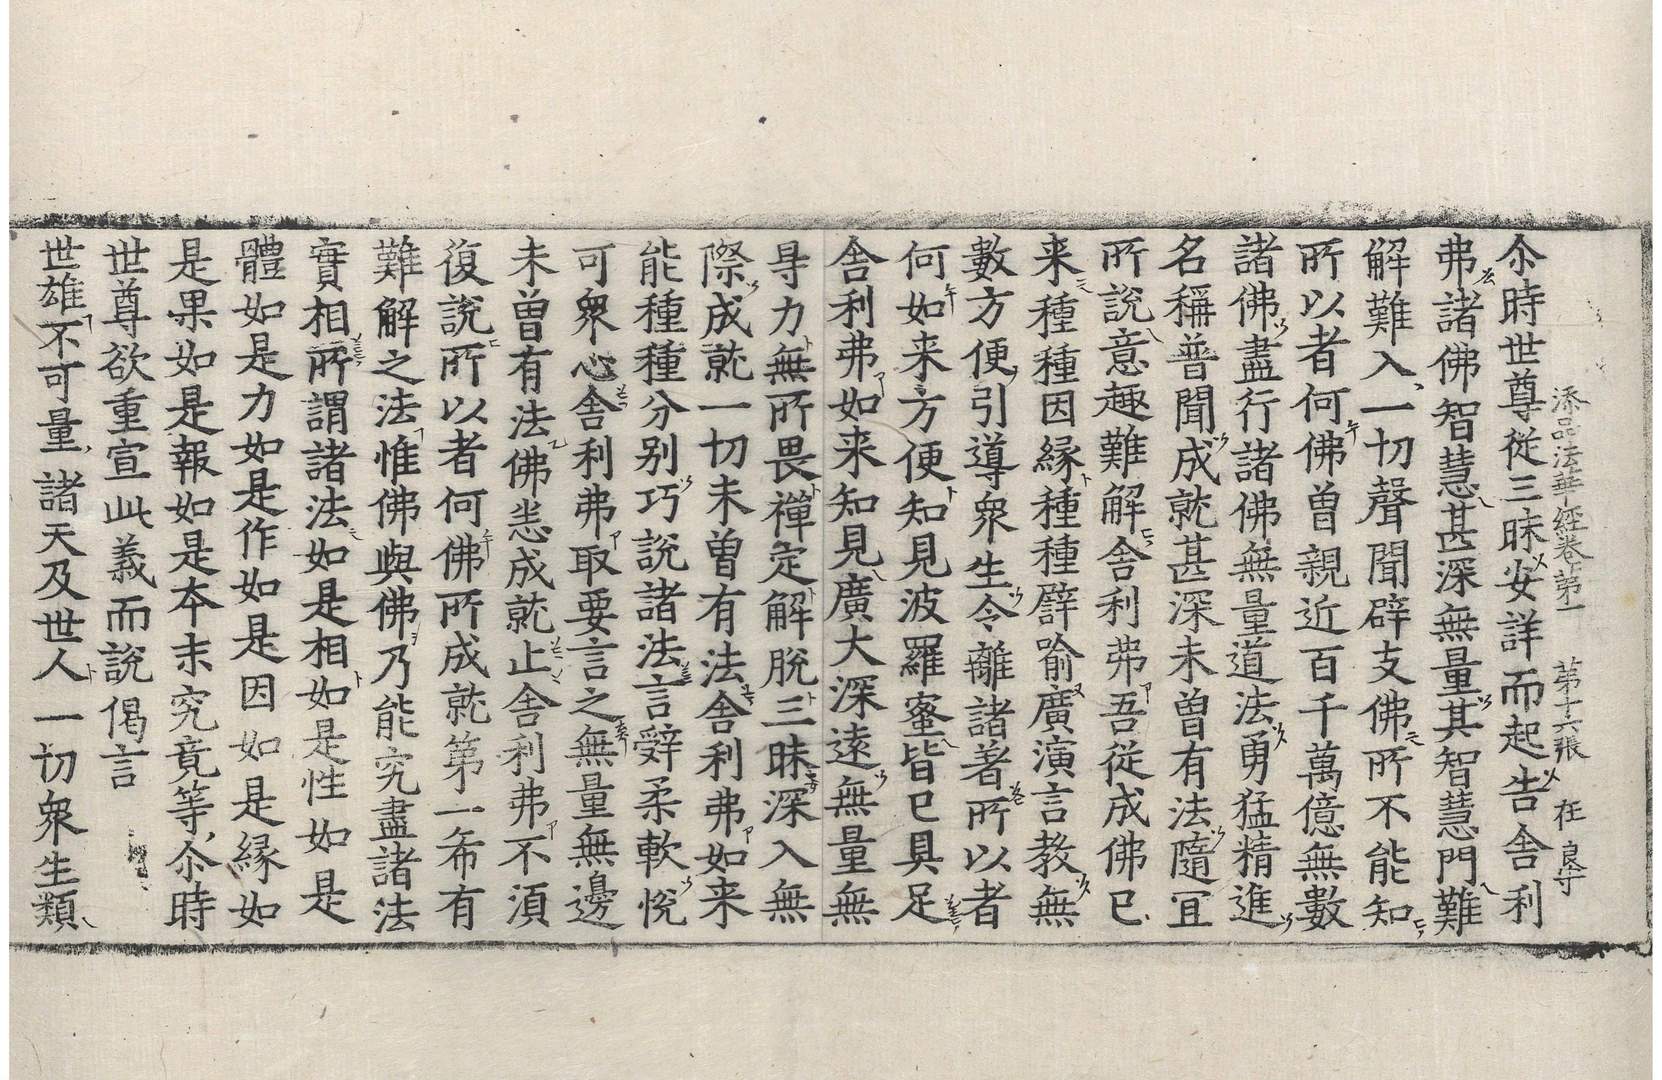 添品法華經卷第一　第十六張　在　良守
尒時世尊從三昧安詳而起告舍利
弗諸佛智慧甚深無量其智慧門難
解難入一切聲聞辟支佛所不能知
所以者何佛曾親近百千萬億無數
諸佛盡行諸佛無量道法勇猛精進
名稱普聞成就甚深未曾有法隨冝
所說意趣難解舍利弗吾從成佛已
来種種因縁種種譬喻廣演言教無
數方便引導衆生令離諸著所以者
何如来方便知見波羅蜜皆已具足
舍利弗如来知見廣大深逺無量無
㝵力無所畏禪定解脫三昧深入無
際成就一切未曾有法舍利弗如来
能種種分别巧說諸法言辭柔軟悅
可衆心舍利弗取要言之無量無邊
未曾有法佛悉成就止舍利弗不須
復說所以者何佛所成就第一希有
難解之法惟佛與佛乃能究盡諸法
實相所謂諸法如是相如是性如是
體如是力如是作如是因如是縁如
是果如是報如是本末究竟等尒時
世尊欲重宣此義而說偈言
世雄不可量諸天及世人一切衆生類